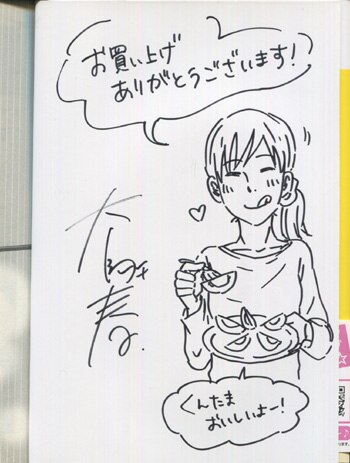 お買い上げ
ありがとうございます!
くんたま
おいしいよー!